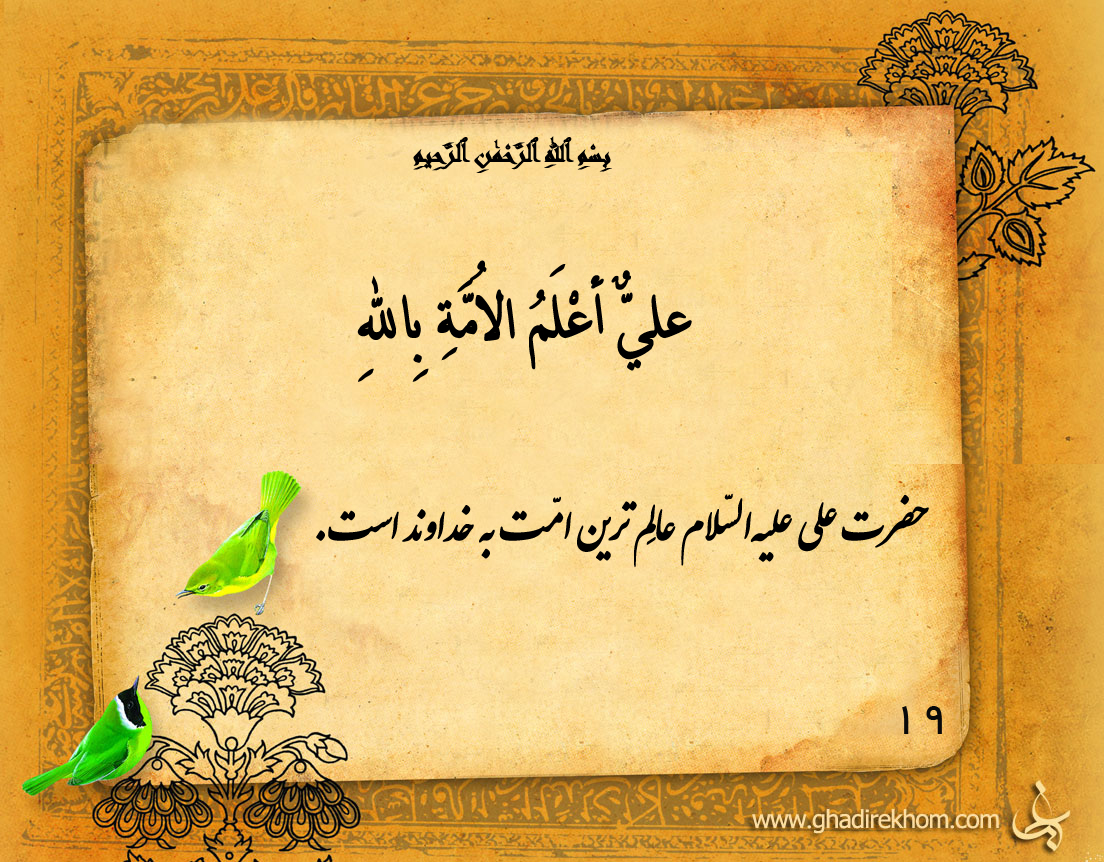 بِسْمِ ٱللَّهِ ٱلرَّحْمَٰنِ ٱلرَّحِيمِ
عليٌّ أعْلَمُ الاُمَّةِ بِاللهِ
حضرت علی علیه‌السّلام عالِم ترین امّت به خداوند است.
۱۹
www.ghadirekhom.com